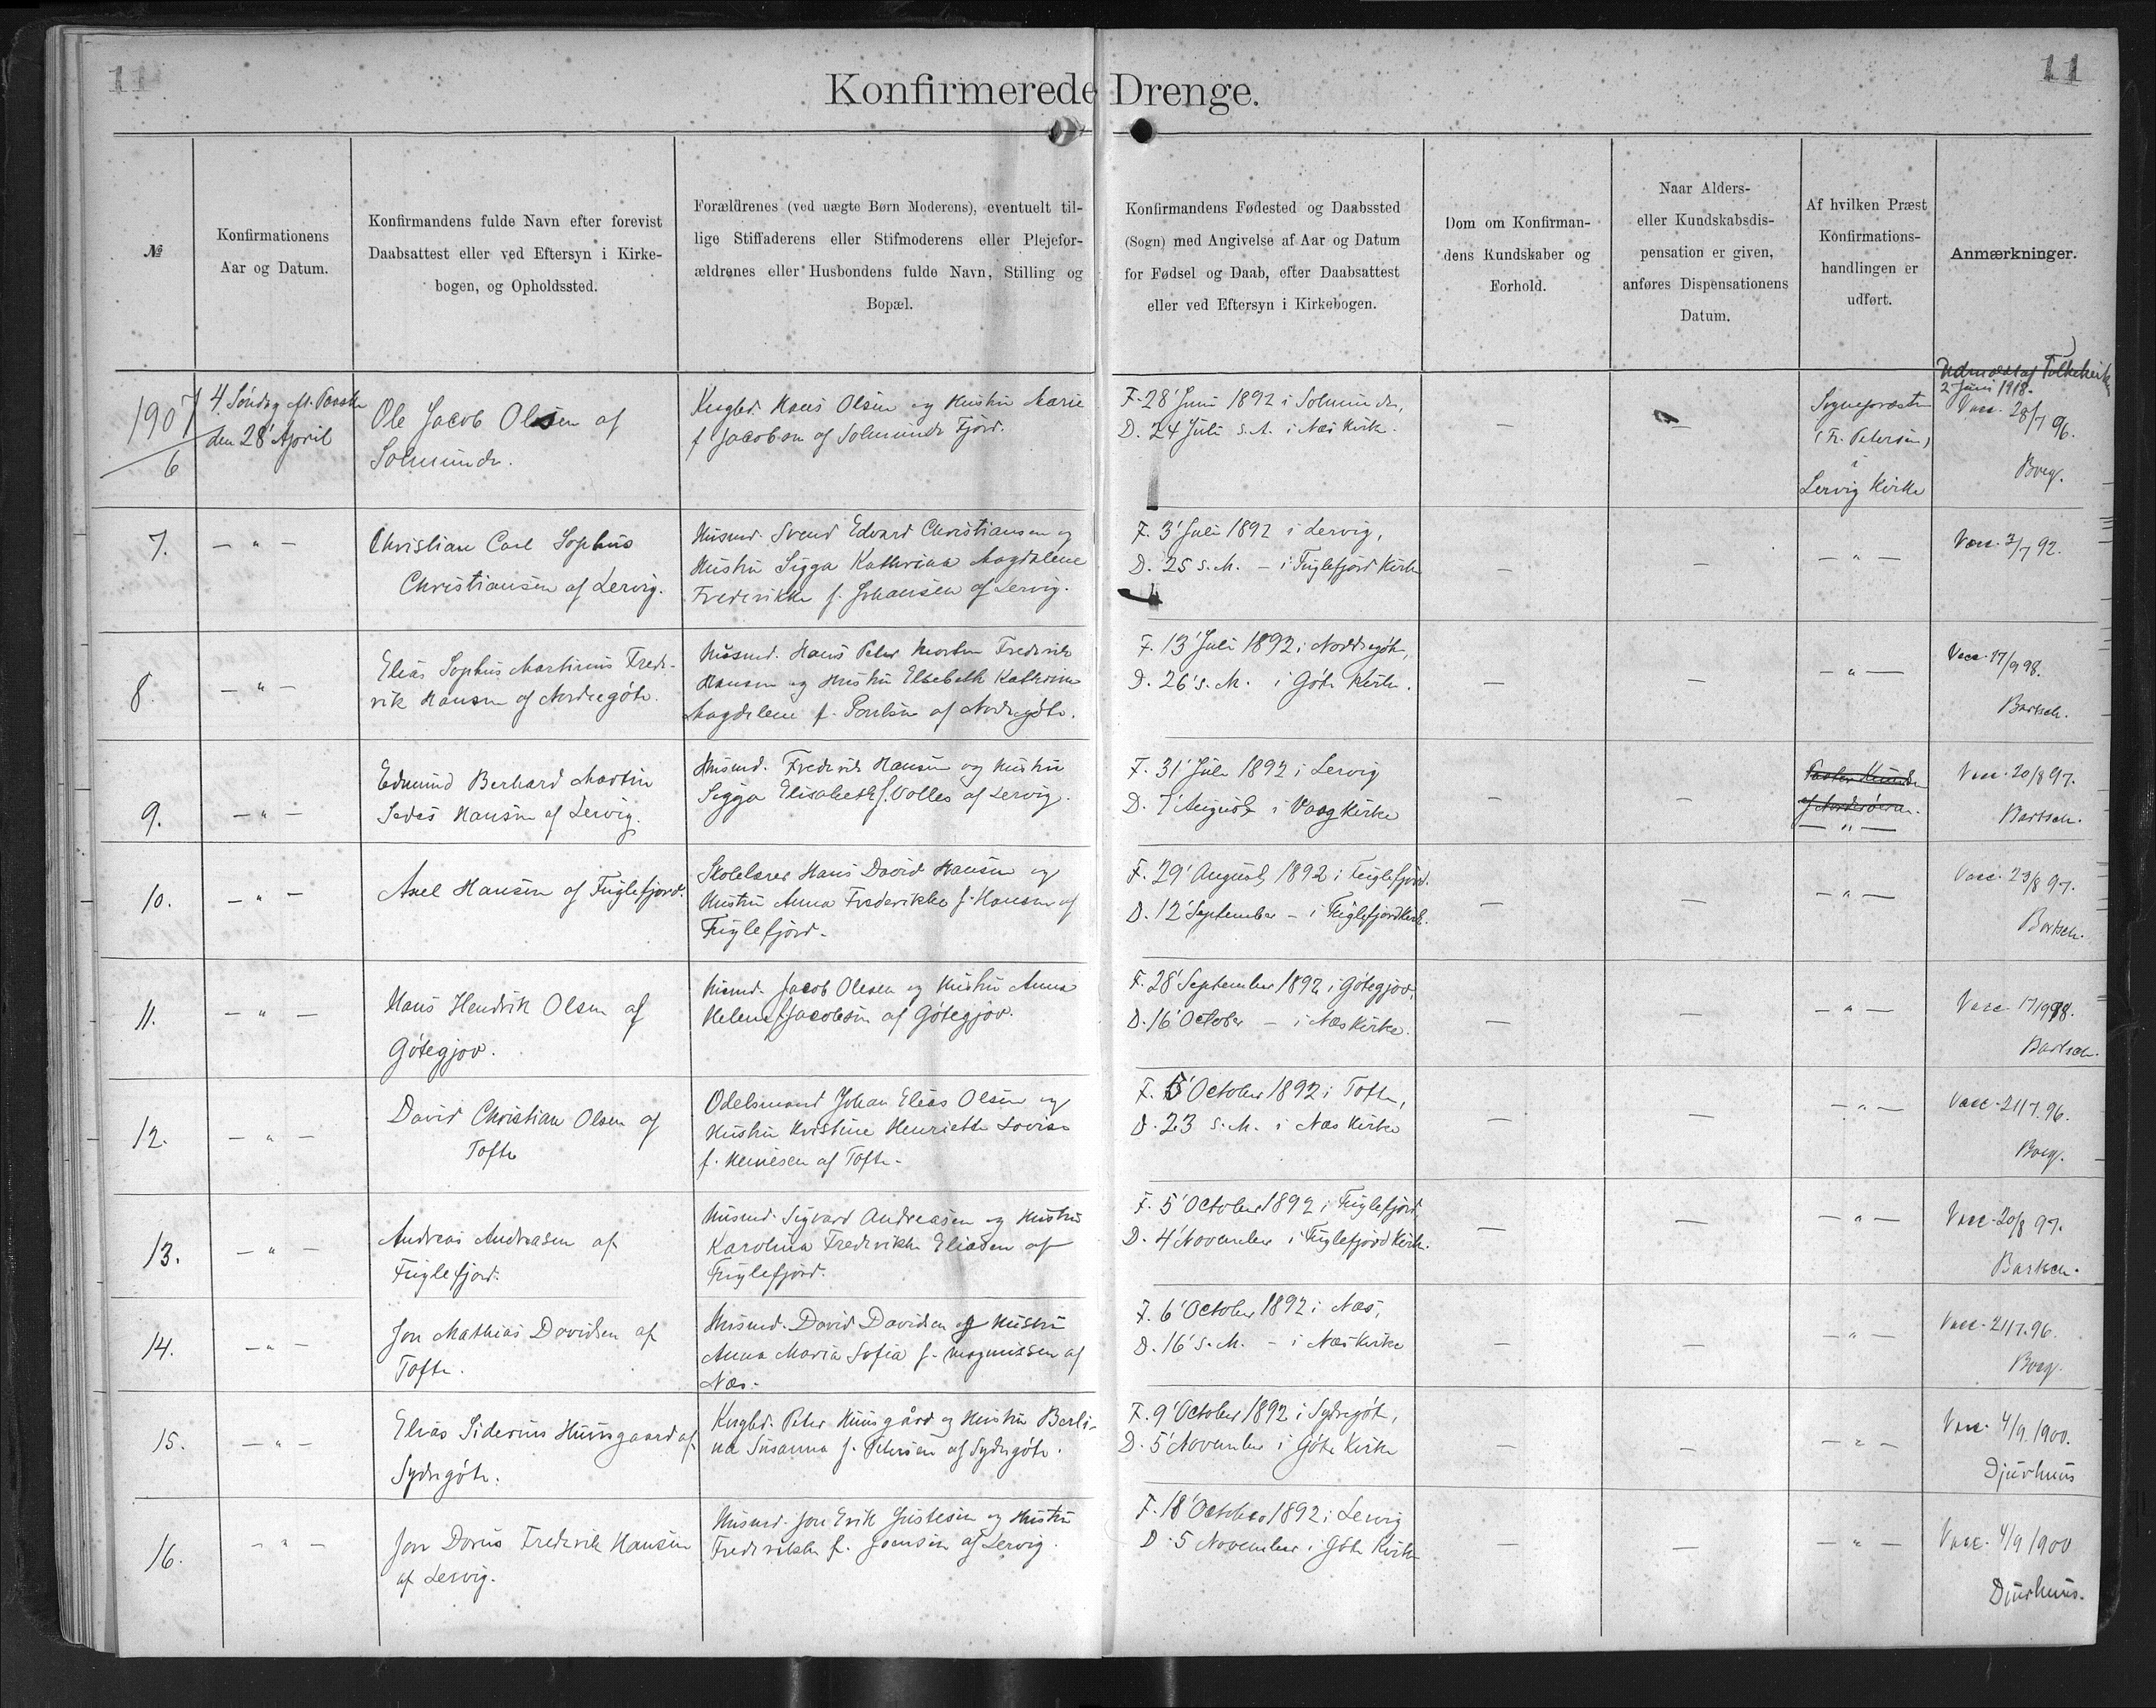 11
11
Konfirmerede Drenge.
№
Konfirmationens
Aar og Datum.
Konfirmandens fulde Navn efter forevist
Daabsattest eller ved Eftersyn i Kirke-
bogen, og Opholdssted.
Forældrenes (ved uægte Børn Moderens), eventuelt til-
lige Stiffaderens eller Stifmoderens eller Plejefor-
ældrenes eller Husbondens fulde Navn, Stilling og
Bopæl.
Konfirmandens Fødested og Daabssted
(Sogn) med Angivelse af Aar og Datum
for Fødsel og Daab, efter Daabsattest
eller ved Eftersyn i Kirkebogen.
Dom om Konfirman-
dens Kundskaber og
Forhold.
Naar Alders-
eller Kundskabsdis-
pensation er given,
anføres Dispensationens
Datum.
Af hvilken Præst
Konfirmations-
handlingen er
udført.
Anmærkninger.
1907
6
4. Søndag eft. Paaske
den 28' April
Ole Jacob Olsen af
Solmunde.
Kngbd. Hans Olsen og Hustru Marie
f. Jacobsen af Solmunde Fjord.
F. 28' Juni 1892 i Solmunde,
D. 24 Juli s. A. i Næs Kirk.
—
—
Sognepræsten
(Fr. Petersen)
i
Lervig Kirke
Udmeldt af Folkekirken
2 Juni 1918.
Vacc. 28/7 96.
Boeg.
7.
— " —
Christian Carl Sophus
Christiansen af Lervig.
Husmd. Svend Edvard Christiansen og
Hustru Sigga Kathrina Magdalene
Frederikke f. Johansen af Lervig.
F. 3' Juli 1892 i Lervig,
D. 25 s. M. — i Fuglefjord Kirke
—
—
— " —
Vacc. 2/7 92.
8.
— " —
Elias Sophus Martinus Frede-
rik Hansen af Nordregøte.
Husmd. Hans Peter Morten Frederik
Hansen og Hustru Elsebeth Kathrine
Magdelene f. Poulsen af Nordregøte.
F. 13' Juli 1892 i Nordregøte,
D. 26' s. M. i Gøte Kirke.
—
—
— " —
Vacc. 17/9 98.
Bartsch.
9.
— " —
Edmund Berhard Martin
Sedes Hansen af Lervig.
Husmd. Frederik Hansen og Hustru
Sigga Elisabeth f. Volles af Lervig.
F. 31' Juli 1892 i Lervig
D. 7' August i Vaag Kirke
—
—
— " —
Vacc. 20/8 97.
Bartsch.
10.
— " —
Axel Hansen af Fuglefjord.
Skolelærer Hans David Hansen og
Hustru Anna Frederikke f. Hansen af
Fuglefjord.
F. 29' August 1892 i Fuglefjord.
D. 12' September — i Fuglefjord Kirk.
—
—
— " —
Vacc. 23/8 97.
Bartsch.
11.
— " —
Hans Hendrik Olsen af
Gøtegjov.
Husmd. Jacob Olesen og Hustru Anna
Helena f. Jacobsen af Gøtegjov.
F. 28' September 1892 i Gøtegjov.
D. 16' October — i Næs Kirke.
—
—
— " —
Vacc. 17/9 98.
Bartsch.
12.
— " —
David Christian Olsen af
Tofte
Odelsmand Johan Elias Olsen og
Hustru Kristine Henriette Lovise
f. Heinesen af Tofte.
F. 5' October 1892 i Tofte,
D. 23 s. M. i Næs Kirke
—
—
— " —
Vacc. 21/7. 96.
Boeg.
13.
— " —
Andreas Andreasen af
Fuglefjord.
Husmd. Sigvard Andreasen og Hustru
Karolina Frederikke Eliasen af
Fuglefjord.
F. 5' October 1892 i Fuglefjord,
D. 4' November i Fuglefjord Kirk.
—
—
— " —
Vacc. 20/8 97.
Bartsch.
14.
— " —
Jon Mathias Davidsen af
Tofte.
Husmd. David Davidsen og Hustru
Anna Maria Sofia f. Magnussen af
Næs.
F. 6' October 1892 i Næs,
D. 16' s. M. — i Næs Kirke
—
—
— " —
Vacc. 21/7. 96.
Boeg.
15.
— " —
Elias Siderius Huusgaard af
Sydregøte.
Kngbd. Peter Huusgård og Hustru Berli-
na Susanna f. Petersen af Sydregøte.
F. 9' October 1892 i Sydregøte,
D. 5' November i Gøte Kirke
—
—
— " —
Vacc. 4/9. 1900.
Djurhuus
16.
— " —
Jon Dorius Frederik Hansen
af Lervig.
Husmd. Jon Erik Justesen og Hustru
Frederikke f. Joensen af Lervig.
F. 18' October 1892 i Lervig
D. 5 November i Gøte Kirke
—
—
— " —
Vacc. 4/9 1900
Djurhuus.